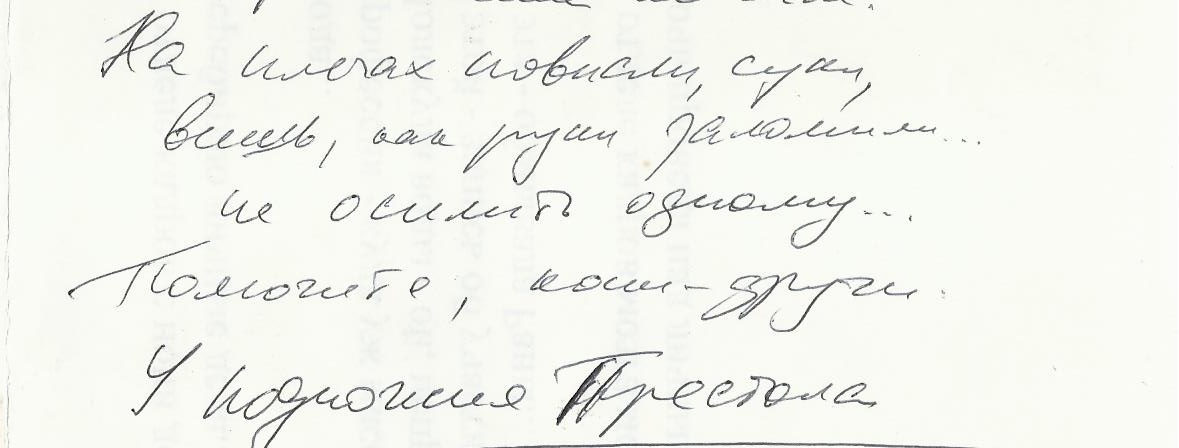 На плечах повисли, суки,
вишь, как руки заломили...
не осилить одному...
Помогите, кони-други.
У подножия Престола